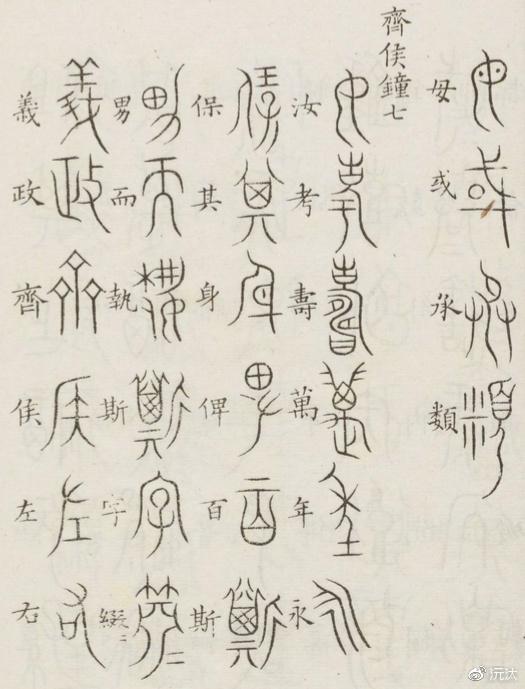 毋或承類
齊侯鐘七
汝考壽萬年永
保其身俾百斯
男而執斯字綴〻
義政齊侯左右
@沅汰